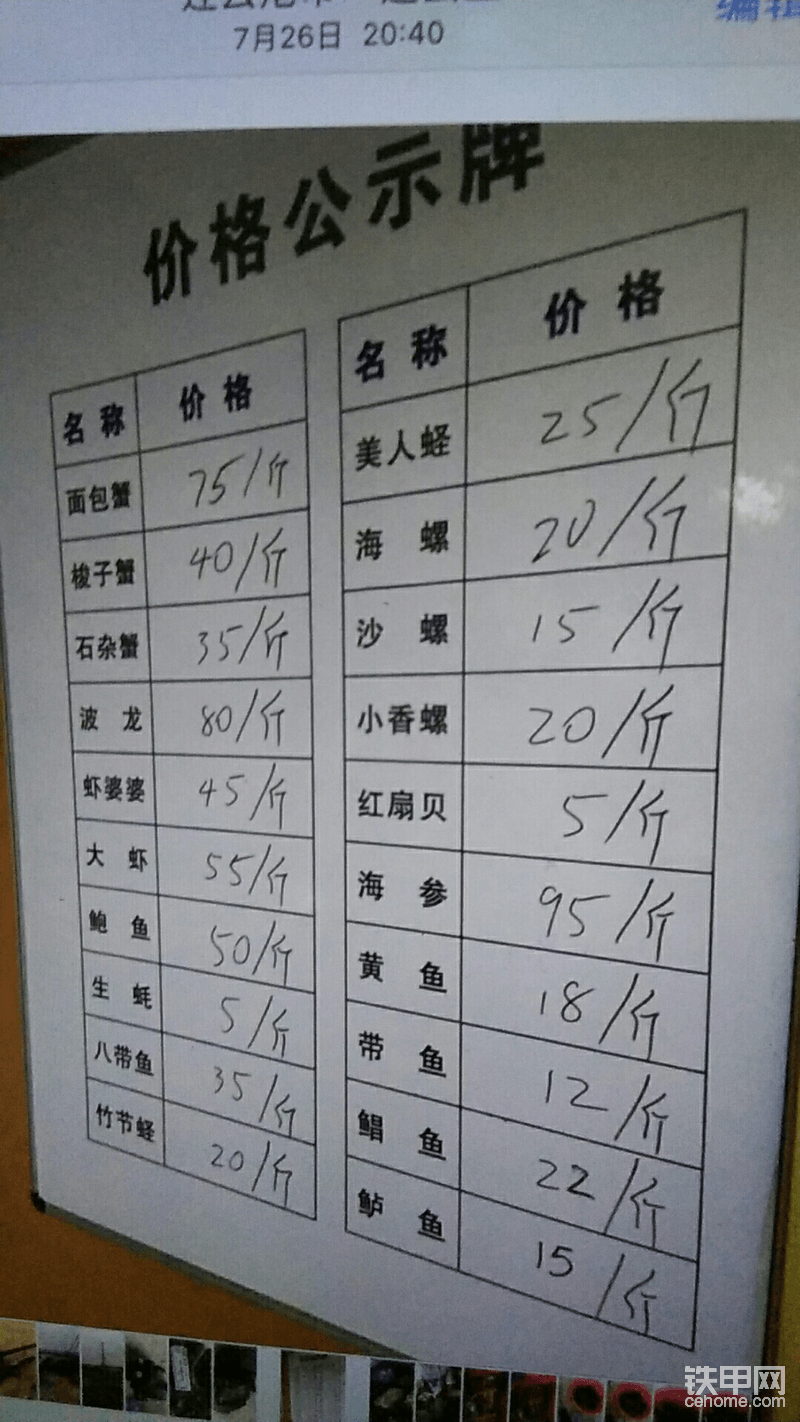 7月26日 20:40
编辑
价格公示牌
名称 价格
面包蟹 75/斤
梭子蟹 40/斤
石杂蟹 35/斤
波龙 80/斤
虾婆婆 45/斤
大虾 55/斤
鲍鱼 50/斤
生蚝 5/斤
八带鱼 35/斤
竹节蛏 20/斤
名称 价格
美人蛏 25/斤
海螺 20/斤
沙螺 15/斤
小香螺 20/斤
红扇贝 5/斤
海参 95/斤
黄鱼 18/斤
带鱼 12/斤
鲳鱼 22/斤
鲈鱼 15/斤
铁甲网
cehome.com